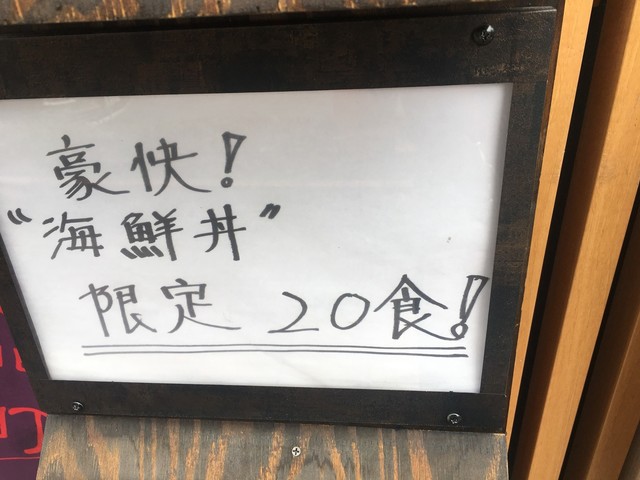 豪快!
"海鮮丼"
限定 20食!